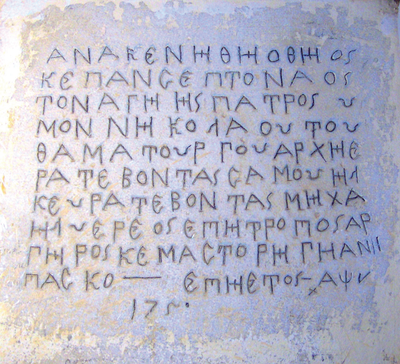 ΑΝΑΚΕΝΗΘΗ Ο ΘΗΟς
ΚΕ ΠΑΝСΕΠΤΟ ΝΑΟς
ΤΟΝ ΑΓΗΗς ΠΑΤΡΟς Υ
ΜΟΝ ΝΗΚΟΛΑΟΥ ΤΟΥ
ΘΑΜΑΤΟΥΡΓΟΥ ΑΡΧΗΕ
ΡΑΤΕΒΟΝΤΑς СΑΜΟΥΗΛ
ΚΕ ΥΡΑΤΕΒΟΝΤΑς ΜΗΧΑ
ΗΛ ΥΕΡΕΟς ΕΠΗΤΡΟΠΟς ΑΡ
ΓΗΡΟς ΚΕ ΜΑСΤΟΡΗ ΓΗΑΝΙ
ΠΑСΚΟ — ΕΠΗ ΕΤΟς - ΑΨΝ
175·